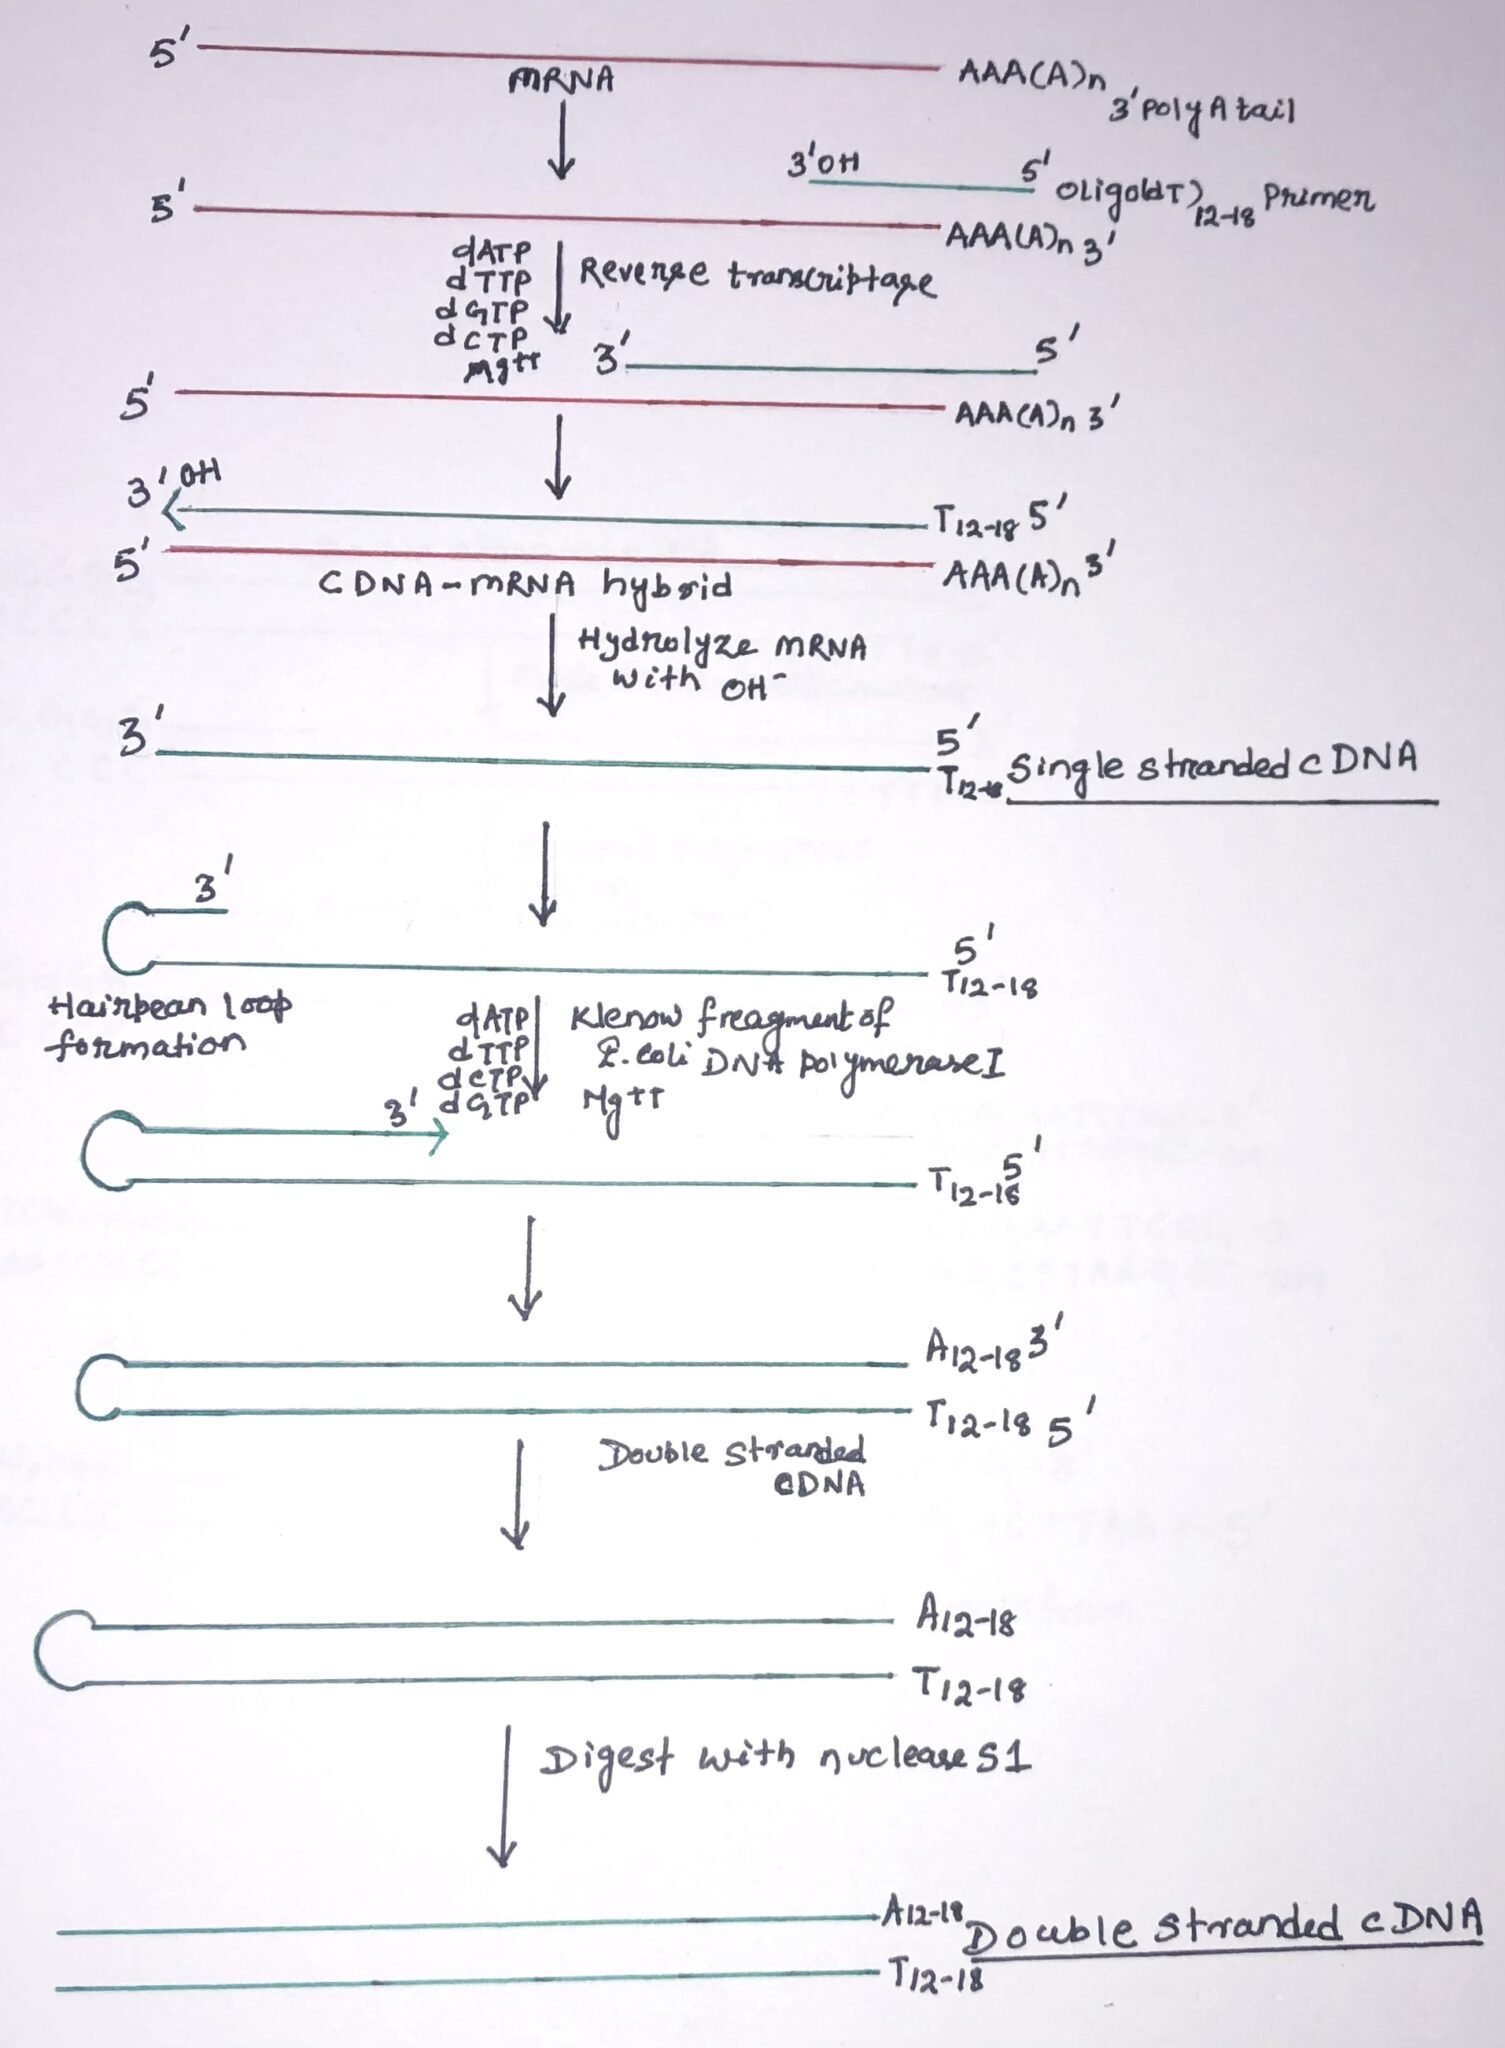 5'
mRNA
AAA(A)n
3' poly A tail
3'OH
5'
Oligo(dT)12-18 Primer
5'
AAA(A)n 3'
dATP
dTTP
dGTP
dCTP
Mg++
Reverse transcriptase
3'
5'
5'
AAA(A)n 3'
3' OH
T12-18 5'
5'
AAA(A)n 3'
CDNA-mRNA hybrid
Hydrolyze mRNA
with OH-
3'
5'
T12-18
Single stranded cDNA
3'
5'
T12-18
Hairpean loop
formation
dATP
dTTP
dCTP
dGTP
Klenow freagment of
E.coli DNA polymerase I
Mg++
3'
5'
T12-18
A12-18 3'
T12-18 5'
Double stranded
cDNA
A12-18
T12-18
Digest with nuclease S1
A12-18
Double stranded cDNA
T12-18